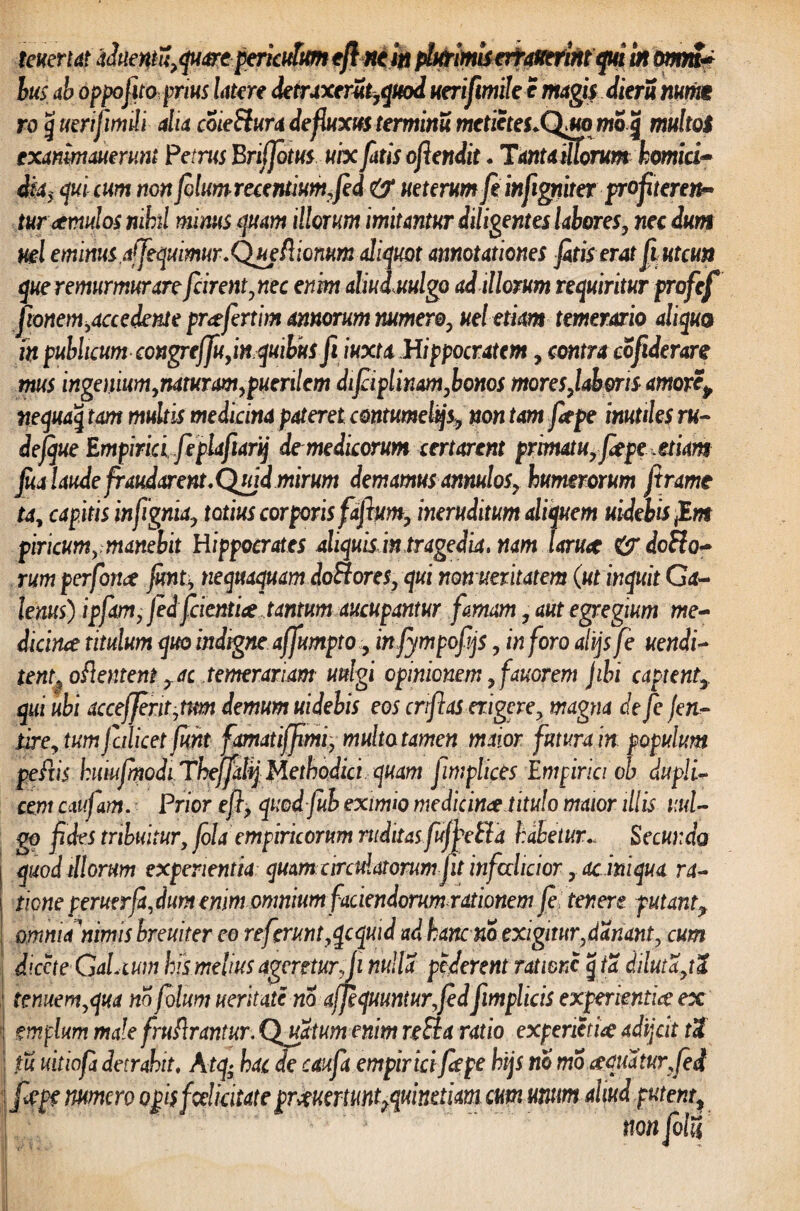 teuertat aduentũ, quare periculum est ne in plurimis errauerint qui in omni-
bus ab opposito prius latere detraxerũt, quod uerisimile ē magis dierũ nume
ro q̃ uerisimili alia cōiectura defluxus terminũ metiētes. Quo mō q̃ multos
exanimauerunt Petrus Brissotus uix satis ostendit. Tanta illorum homici-
dia, qui cum non solum recentium, sed & ueterum se insigniter profiteren-
tur æmulos nihil minus quam illorum imitantur diligentes labores, nec dum
uel eminus assequimur. Quęstionum aliquot annotationes satis erat si utcun
que remurmurare scirent, nec enim aliud uulgo ad illorum requiritur profes
sionem, accedente præsertim annorum numero, uel etiam temerario aliquo
in publicum congressu, in quibus si iuxta Hippocratem, contra cōsiderare
mus ingenium, naturam, puerilem disciplinam, bonos mores, laboris amorē,
nequaq̃ tam multis medicina pateret contumelijs, non tam sæpe inutiles ru-
desque Empirici seplasiarij de medicorum certarent primatu, sæpe etiam
sua laude fraudarent. Quid mirum demamus annulos, humerorum strame
ta, capitis insignia, totius corporis fastum, ineruditum aliquem uidebis Em
piricum, manebit Hippocrates aliquis in tragedia. nam laruæ & docto-
rum personæ sunt, nequaquam doctores, qui non ueritatem (ut inquit Ga-
lenus) ipsam, sed scientiæ tantum aucupantur famam, aut egregium me-
dicinæ titulum quo indigne assumpto, in symposijs, in foro alijs se uendi-
tent, ostentent, ac temerariam uulgi opinionem, fauorem sibi captent,
qui ubi accesserit, tum demum uidebis eos cristas erigere, magna de se sen-
tire, tum scilicet sunt famatissimi, multo tamen maior futura in populum
pestis huiusmodi Thessalij Methodici quam simplices Empirici ob dupli-
cem causam. Prior est, quod sub eximio medicinæ titulo maior illis uul-
go fides tribuitur, sola empiricorum ruditas suspecta habetur. Secunda
quod illorum experientia quam circulatorum sit infœlicior, ac iniqua ra-
tione peruersa, dum enim omnium faciendorum rationem se tenere putant,
omnia nimis breuiter eo referunt, qcquid ad hanc nō exigitur, dānant, cum
dicēte Gal. cum his melius ageretur, si nullā pęderent rationē q̃ tā dilutā, tā
tenuem, qua nō solum ueritatē nō assequuntur, sed simplicis experientiæ ex
emplum male frustrantur. Quātum enim recta ratio experiētiæ adijcit tā
tũ uitiosa detrahit. Atq; hac de causa empirici sæpe hijs nō mō æquātur, sed
sæpe numero opis fœlicitate præuertunt, quinetiam cum unum aliud putent,
non solũ